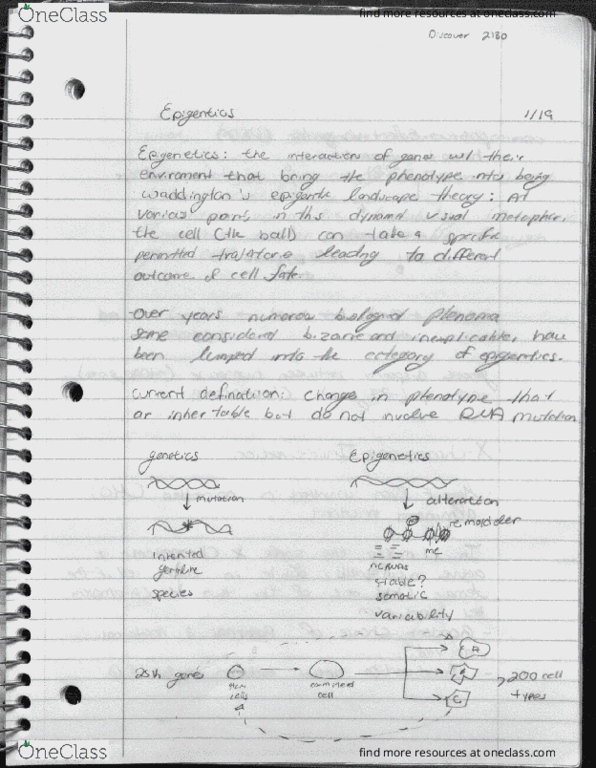 OneClass
find more resources at oneclass.com
Discover 2130
Epigentics 1/19
Epigenetics: the interaction of genes w/ their
enviroment that bring the phenotype into being
Waddington's epigentic landscape theory: At
various points in this dynamic visual metaphor,
the cell (the ball) can take a specific
permitted leading to different
outcome cell fate.
over years numerous biological
some considered bizarre and inexplicable, have
been lumped into the category of epigentics.
current definition: changes in phenotype that
are but do not involve mutation
genetics Epigenetics
mutation alteration
remoldeler
me
germline
stable?
species somatic
variability
genes
cell
A
C
200 cell
types
OneClass
find more resources at oneclass.com